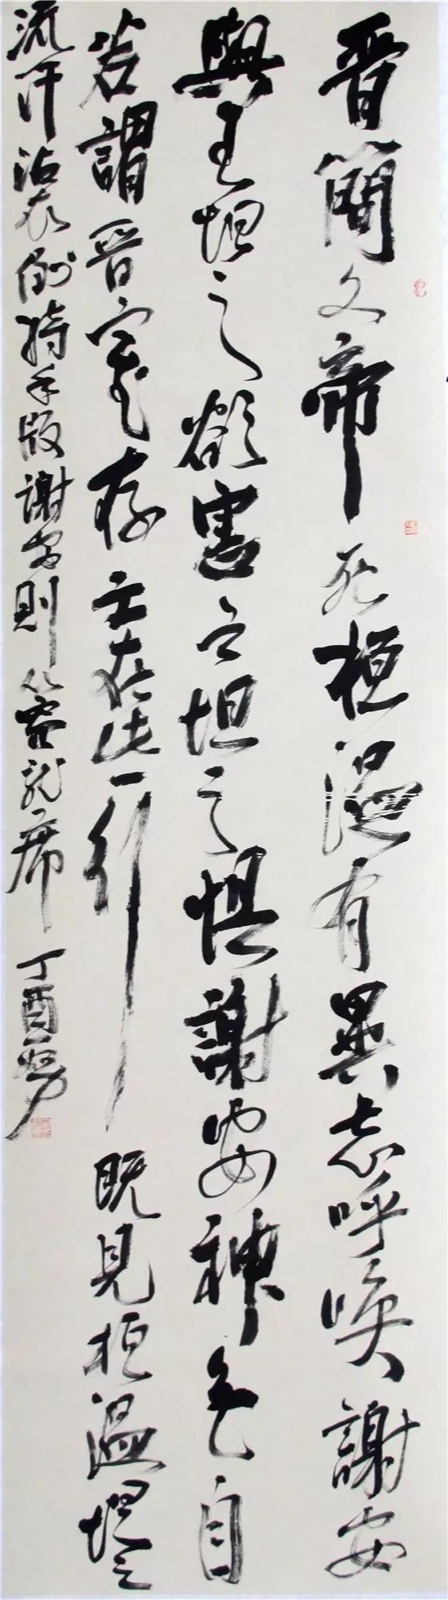 晋簡文帝死桓温有異志呼喚謝安
與王坦之欲害之坦之惧謝安神色自
若謂晋室存亡在此一行既見桓温坦之
流汗沾衣倒持手版謝安則从容就席 丁酉